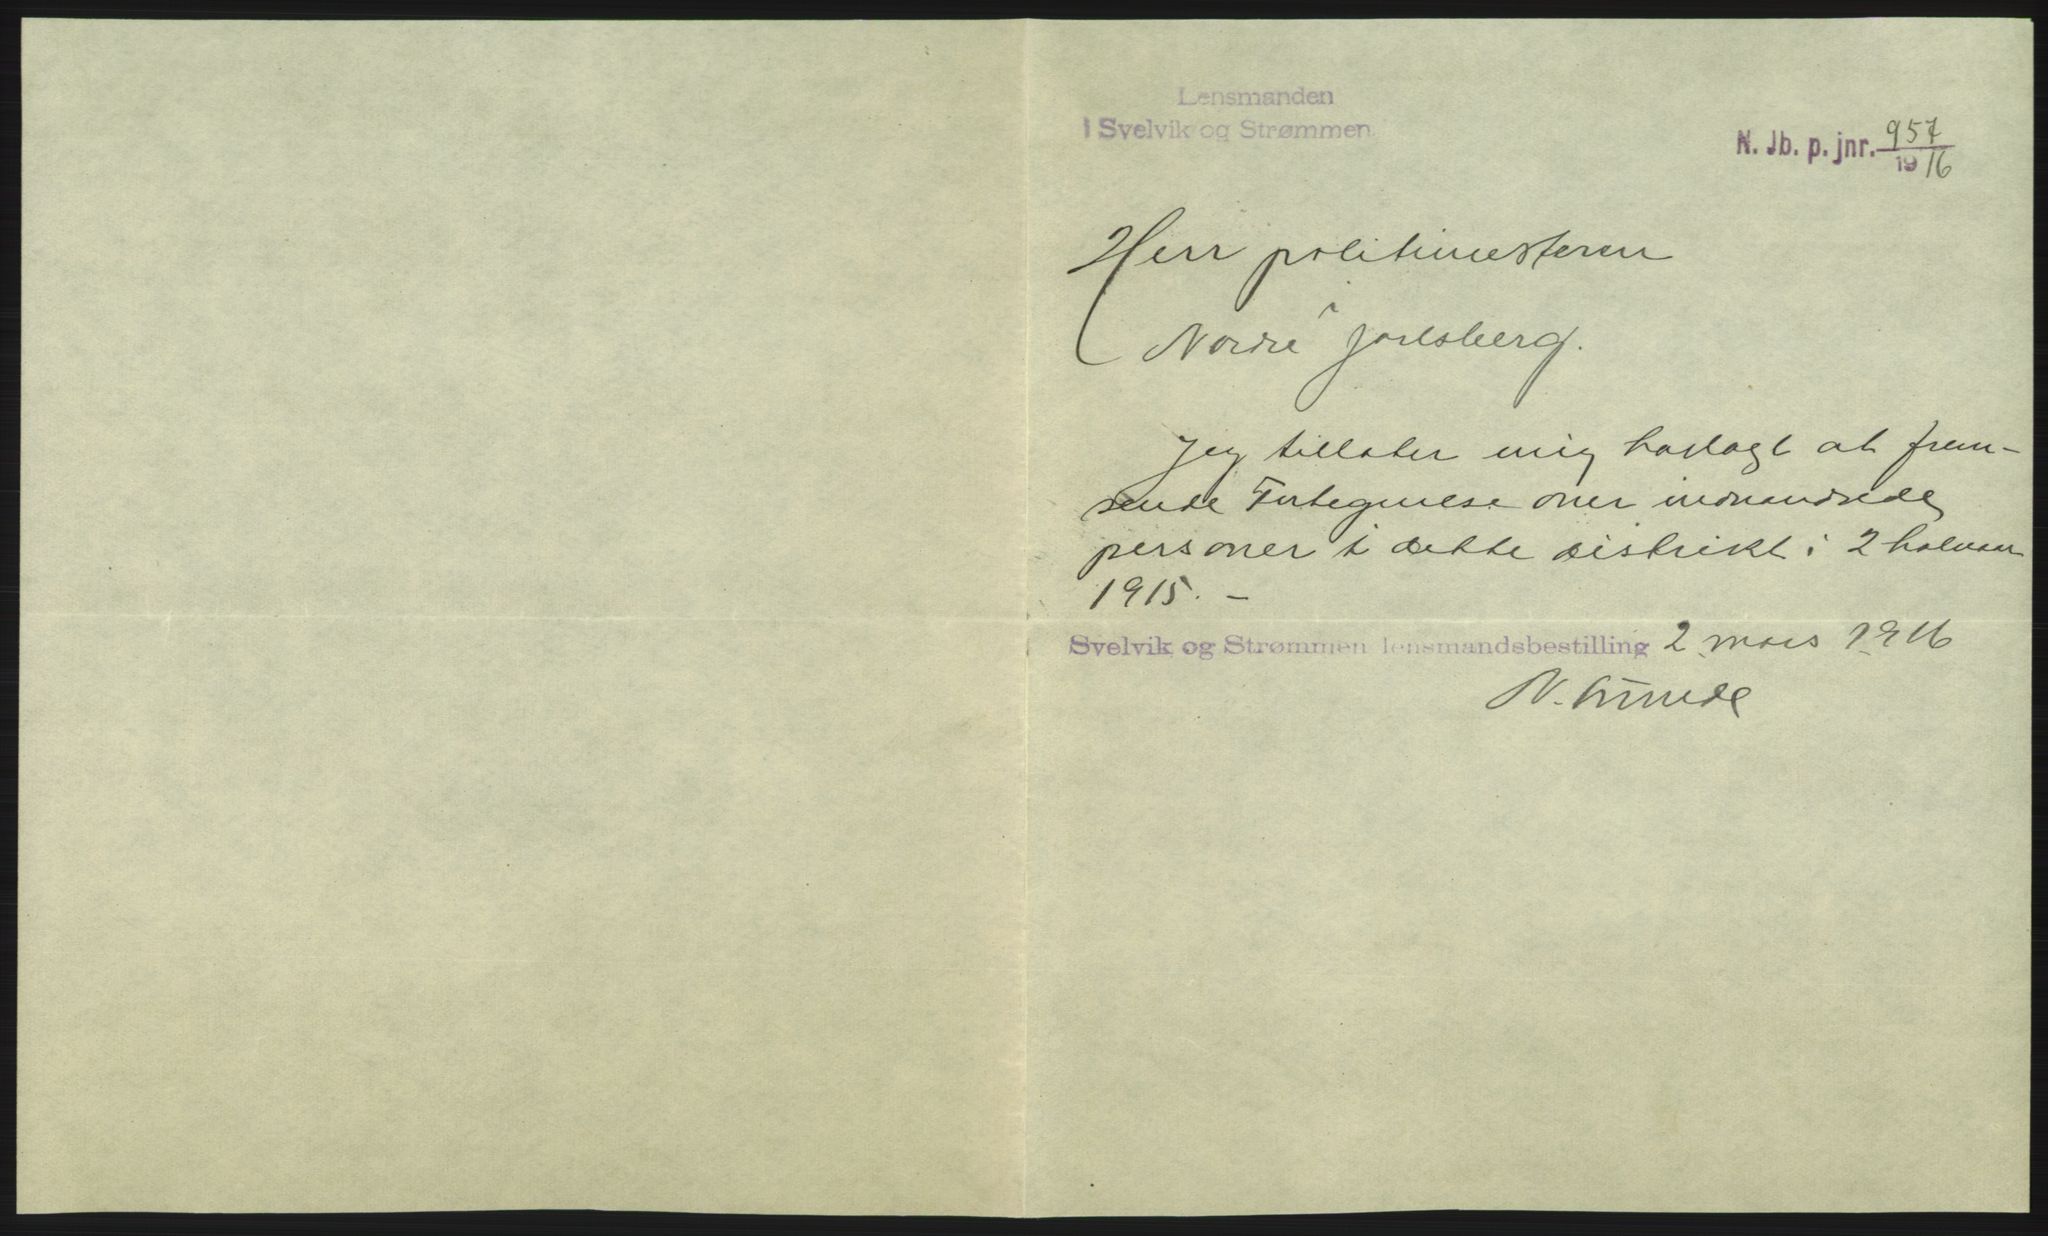 Lensmanden
i Svelvik og Strømmen
N. Jb. p. jnr. 957
1916
Herr politimesteren
i
Nordre Jarlsberg.
Jeg tillater mig hoslagt at frem-
sende Fortegnelse over indvandrede
personer i dette distrikt i 2 halvaar
1915. -
Svelvik og Strømmen lensmandsbestilling 2 mars 1916
N.